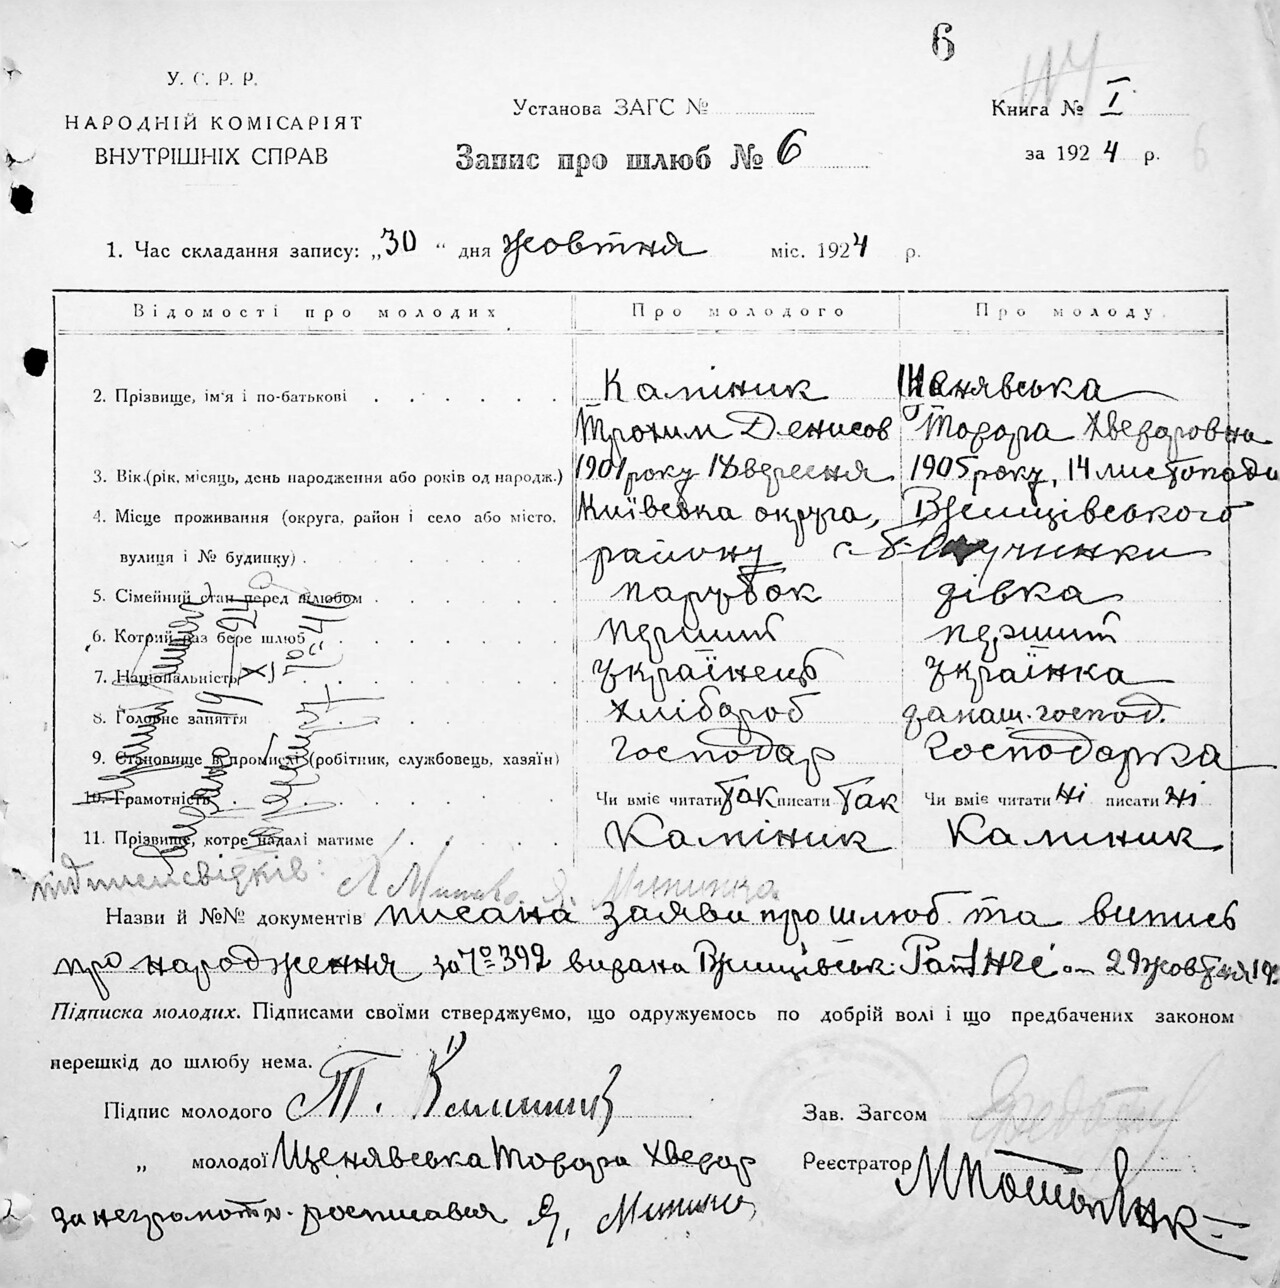 6
У. С. Р. Р.
НАРОДНІЙ КОМІСАРІЯТ
ВНУТРІШНІХ СПРАВ
Установа ЗАГС №
Запис про шлюб № 6
Книга № I
за 1924 р.
6
1. Час складання запису: „30" дня жовтня міс. 1924 р.
Відомості про молодих Про молодого Про молоду
2. Прізвище, ім'я і по-батькові Каліник Щенявська
Трохим Денисов Тодора Хведоровна
3. Вік (рік, місяць, день народження або років од народж.) 1901 року 18 вересня 1905 року, 14 листопада
4. Місце проживання (округа, район і село або місто, Київська округа,
вулиця і № будинку) району с.
5. Сімейний стан перед шлюбом парубок дівка
6. Котрий раз бере шлюб перший перший
7. Національність українець українка
8. Головне заняття хлібороб домаш. господ.
9. Становище в промислі (робітник, службовець, хазяїн) господар господарка
10. Грамотність Чи вміє читати так писати так Чи вміє читати ні писати ні
11. Прізвище, котре надалі матиме Каліник Калиник
підписи свідків:
Назви й №№ документів писана заява про шлюб та випись
про народження за № 392 видана 29 жовтня
Підписка молодих. Підписами своїми стверджуємо, що одружуємось по добрій волі і що предбачених законом
перешкід до шлюбу нема.
Підпис молодого Т. Калиник Зав. Загсом
„ молодої Щенявська Тодора Хведор Реєстратор
за неграмотн. росписався Я.